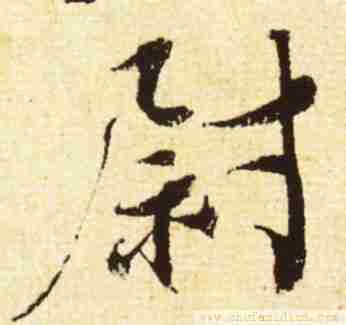 尉
www.shufazidian.com